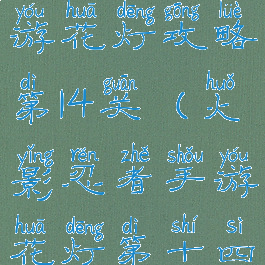 yóu huā dēng gōng lüè
游花灯攻略
dì guān huǒ
第14关(火
yǐng rěn zhě shǒu yóu
影忍者手游
huā dēng dì shí sì
花灯第十四